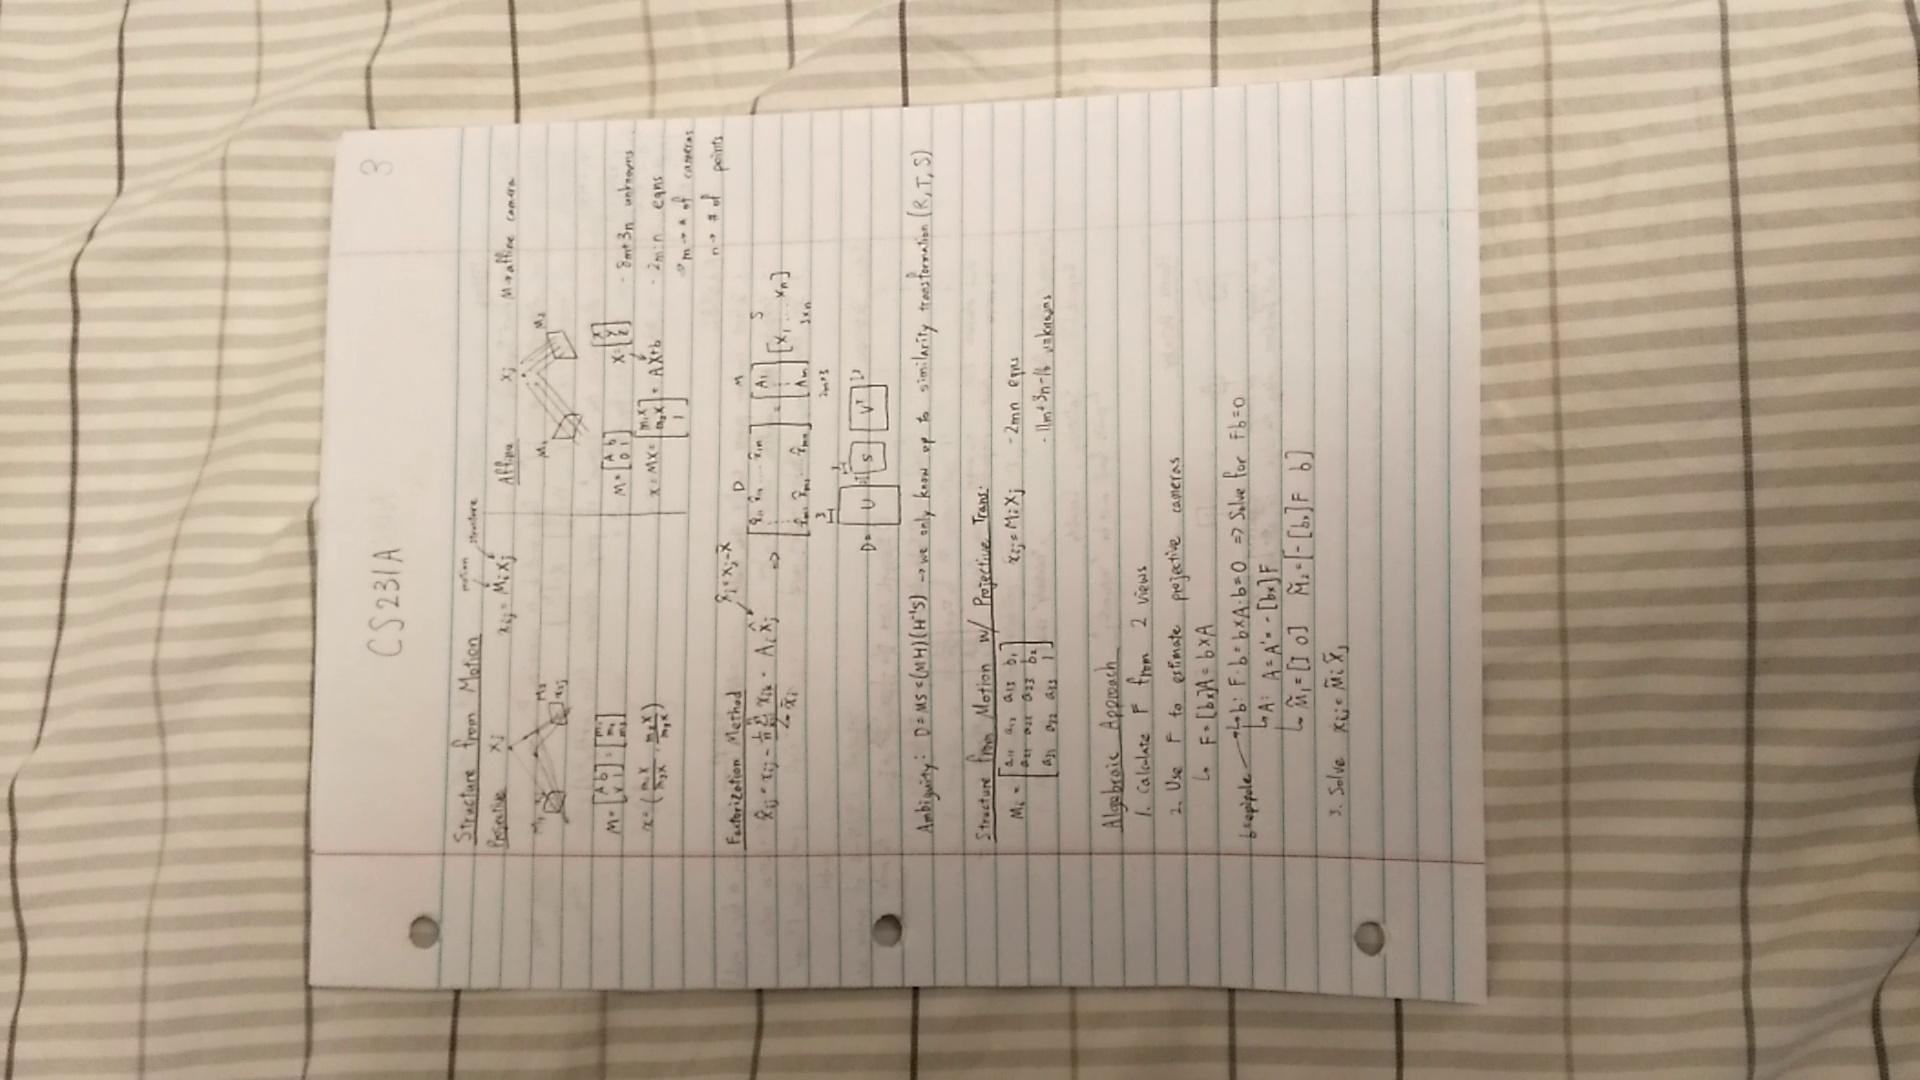 CS231A
3
Structure from Motion
motion
structure
Projective
Xj
xij = Mi Xj
M1
M2
xij
M = [A b; v 1] = [m1; m2; m3]
x = (m1X/m3X, m2X/m3X)
Affine
Xj
M → affine camera
M1
M2
M = [A b; 0 1]
X = [x; y; z]
x = MX = [m1X; m2X; 1] = AX+b
- 8m+3n unknowns
- 2m·n eqns
m → # of cameras
n → # of points
Factorization Method
X̂j = Xj - X̄
x̂ij = xij - 1/n Σ xik = Ai X̂j
↳ x̄i
⇒
D
M
S
[x̂11 x̂12 ... x̂1n; ⋮; x̂m1 x̂m2 ... x̂mn] = [A1; ⋮; Am] [X1 ... Xn]
2m×3
3×n
3
3
D = U S Vᵀ
Ambiguity: D = MS = (MH)(H⁻¹S) → we only know up to similarity transformation (R, T, S)
Structure from Motion w/ Projective Trans.
Mi = [a11 a12 a13 b1; a21 a22 a23 b2; a31 a32 a33 1]
xij = MiXj
- 2mn eqns
- 11m+3n-15 unknowns
Algebraic Approach
1. Calculate F from 2 views
2. Use F to estimate projective cameras
↳ F = [b×]A = b×A
b=epipole → ↳ b: F·b = b×A·b = 0 ⇒ Solve for Fb=0
↳ A: A = A' = -[b×]F
↳ M̃1 = [I 0] M̃2 = [-[b×]F b]
3. Solve xij = M̃i X̃j